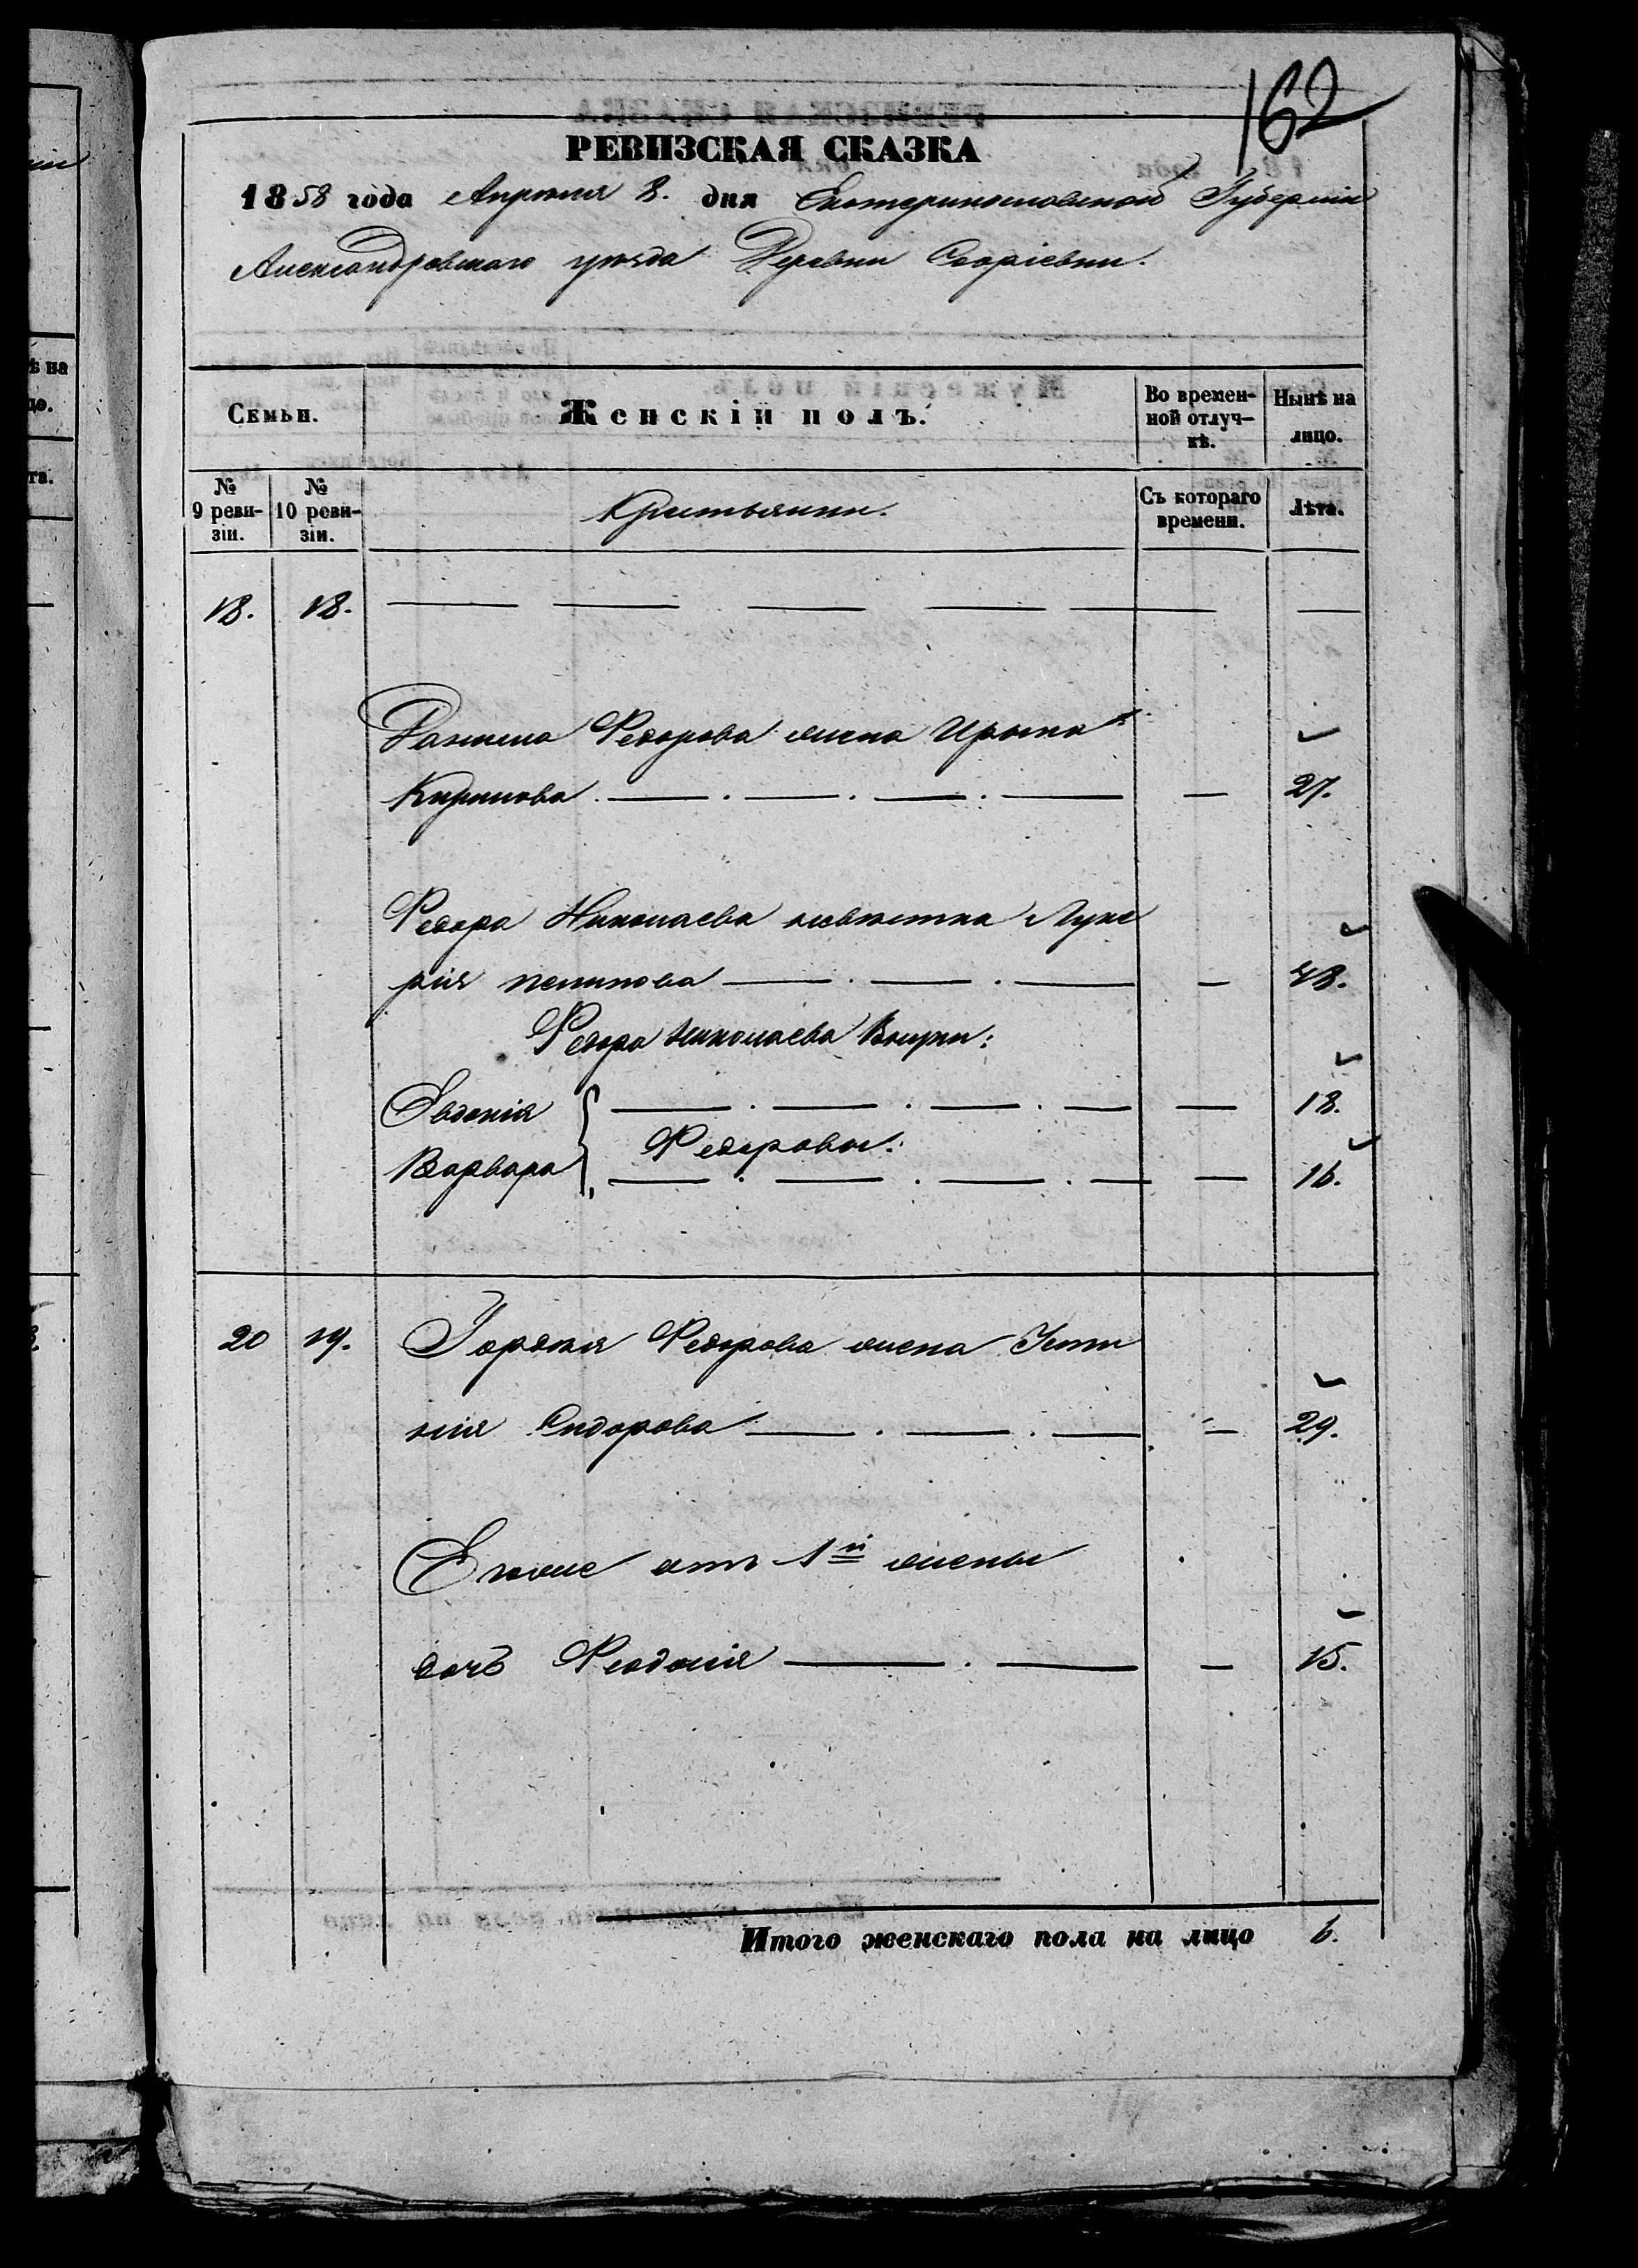 162
РЕВИЗСКАЯ СКАЗКА
1858 года Апрѣля 8. дня Екатеринославской Губерніи
Александровскаго уѣзда Деревни Софіевки.
Семьи.
Женскій полъ.
Во времен-
ной отлуч-
кѣ.
Нынѣ на
лицо.
№
9 реви-
зіи.
№
10 реви-
зіи.
Крестьянки.
Съ котораго
времени.
Лѣта.
18. 18.
Данила Федорова жена Ирына
Кирилова 27.
Федора Николаева невѣстка Луке
рія 48.
Федора Николаева Внучки:
Евдокія 18.
Федоровы:
Варвара 16.
20 19. Гордѣя Федорова жена Усти
нія Сидорова 29.
Егоже отъ 1й жены
дочь Феодосія 15.
Итого женскаго пола на лицо 6.